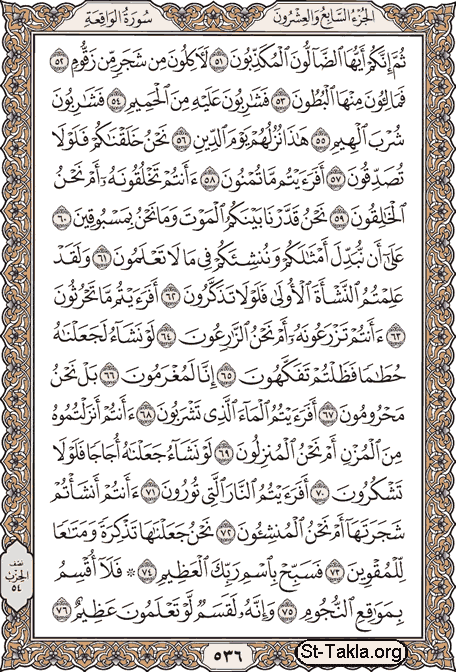 الجزء السابع والعشرون سورة الواقعة
ثُمَّ إِنَّكُمْ أَيُّهَا الضَّالُّونَ الْمُكَذِّبُونَ ٥١ لَآكِلُونَ مِن شَجَرٍ مِّن زَقُّومٍ ٥٢
فَمَالِـُٔونَ مِنْهَا الْبُطُونَ ٥٣ فَشَارِبُونَ عَلَيْهِ مِنَ الْحَمِيمِ ٥٤ فَشَارِبُونَ
شُرْبَ الْهِيمِ ٥٥ هَٰذَا نُزُلُهُمْ يَوْمَ الدِّينِ ٥٦ نَحْنُ خَلَقْنَاكُمْ فَلَوْلَا
تُصَدِّقُونَ ٥٧ أَفَرَءَيْتُم مَّا تُمْنُونَ ٥٨ ءَأَنتُمْ تَخْلُقُونَهُۥ أَمْ نَحْنُ
الْخَالِقُونَ ٥٩ نَحْنُ قَدَّرْنَا بَيْنَكُمُ الْمَوْتَ وَمَا نَحْنُ بِمَسْبُوقِينَ ٦٠
عَلَىٰ أَن نُّبَدِّلَ أَمْثَالَكُمْ وَنُنشِئَكُمْ فِي مَا لَا تَعْلَمُونَ ٦١ وَلَقَدْ
عَلِمْتُمُ النَّشْأَةَ الْأُولَىٰ فَلَوْلَا تَذَكَّرُونَ ٦٢ أَفَرَءَيْتُم مَّا تَحْرُثُونَ
٦٣ ءَأَنتُمْ تَزْرَعُونَهُۥ أَمْ نَحْنُ الزَّارِعُونَ ٦٤ لَوْ نَشَاءُ لَجَعَلْنَاهُ
حُطَامًا فَظَلْتُمْ تَفَكَّهُونَ ٦٥ إِنَّا لَمُغْرَمُونَ ٦٦ بَلْ نَحْنُ
مَحْرُومُونَ ٦٧ أَفَرَءَيْتُمُ الْمَاءَ الَّذِي تَشْرَبُونَ ٦٨ ءَأَنتُمْ أَنزَلْتُمُوهُ
مِنَ الْمُزْنِ أَمْ نَحْنُ الْمُنزِلُونَ ٦٩ لَوْ نَشَاءُ جَعَلْنَاهُ أُجَاجًا فَلَوْلَا
تَشْكُرُونَ ٧٠ أَفَرَءَيْتُمُ النَّارَ الَّتِي تُورُونَ ٧١ ءَأَنتُمْ أَنشَأْتُمْ
شَجَرَتَهَا أَمْ نَحْنُ الْمُنشِـُٔونَ ٧٢ نَحْنُ جَعَلْنَاهَا تَذْكِرَةً وَمَتَاعًا
لِّلْمُقْوِينَ ٧٣ فَسَبِّحْ بِاسْمِ رَبِّكَ الْعَظِيمِ ٧٤ ۞ فَلَا أُقْسِمُ
بِمَوَاقِعِ النُّجُومِ ٧٥ وَإِنَّهُۥ لَقَسَمٌ لَّوْ تَعْلَمُونَ عَظِيمٌ ٧٦
نصف
الحزب
٥٤
٥٣٦
St-Takla.org